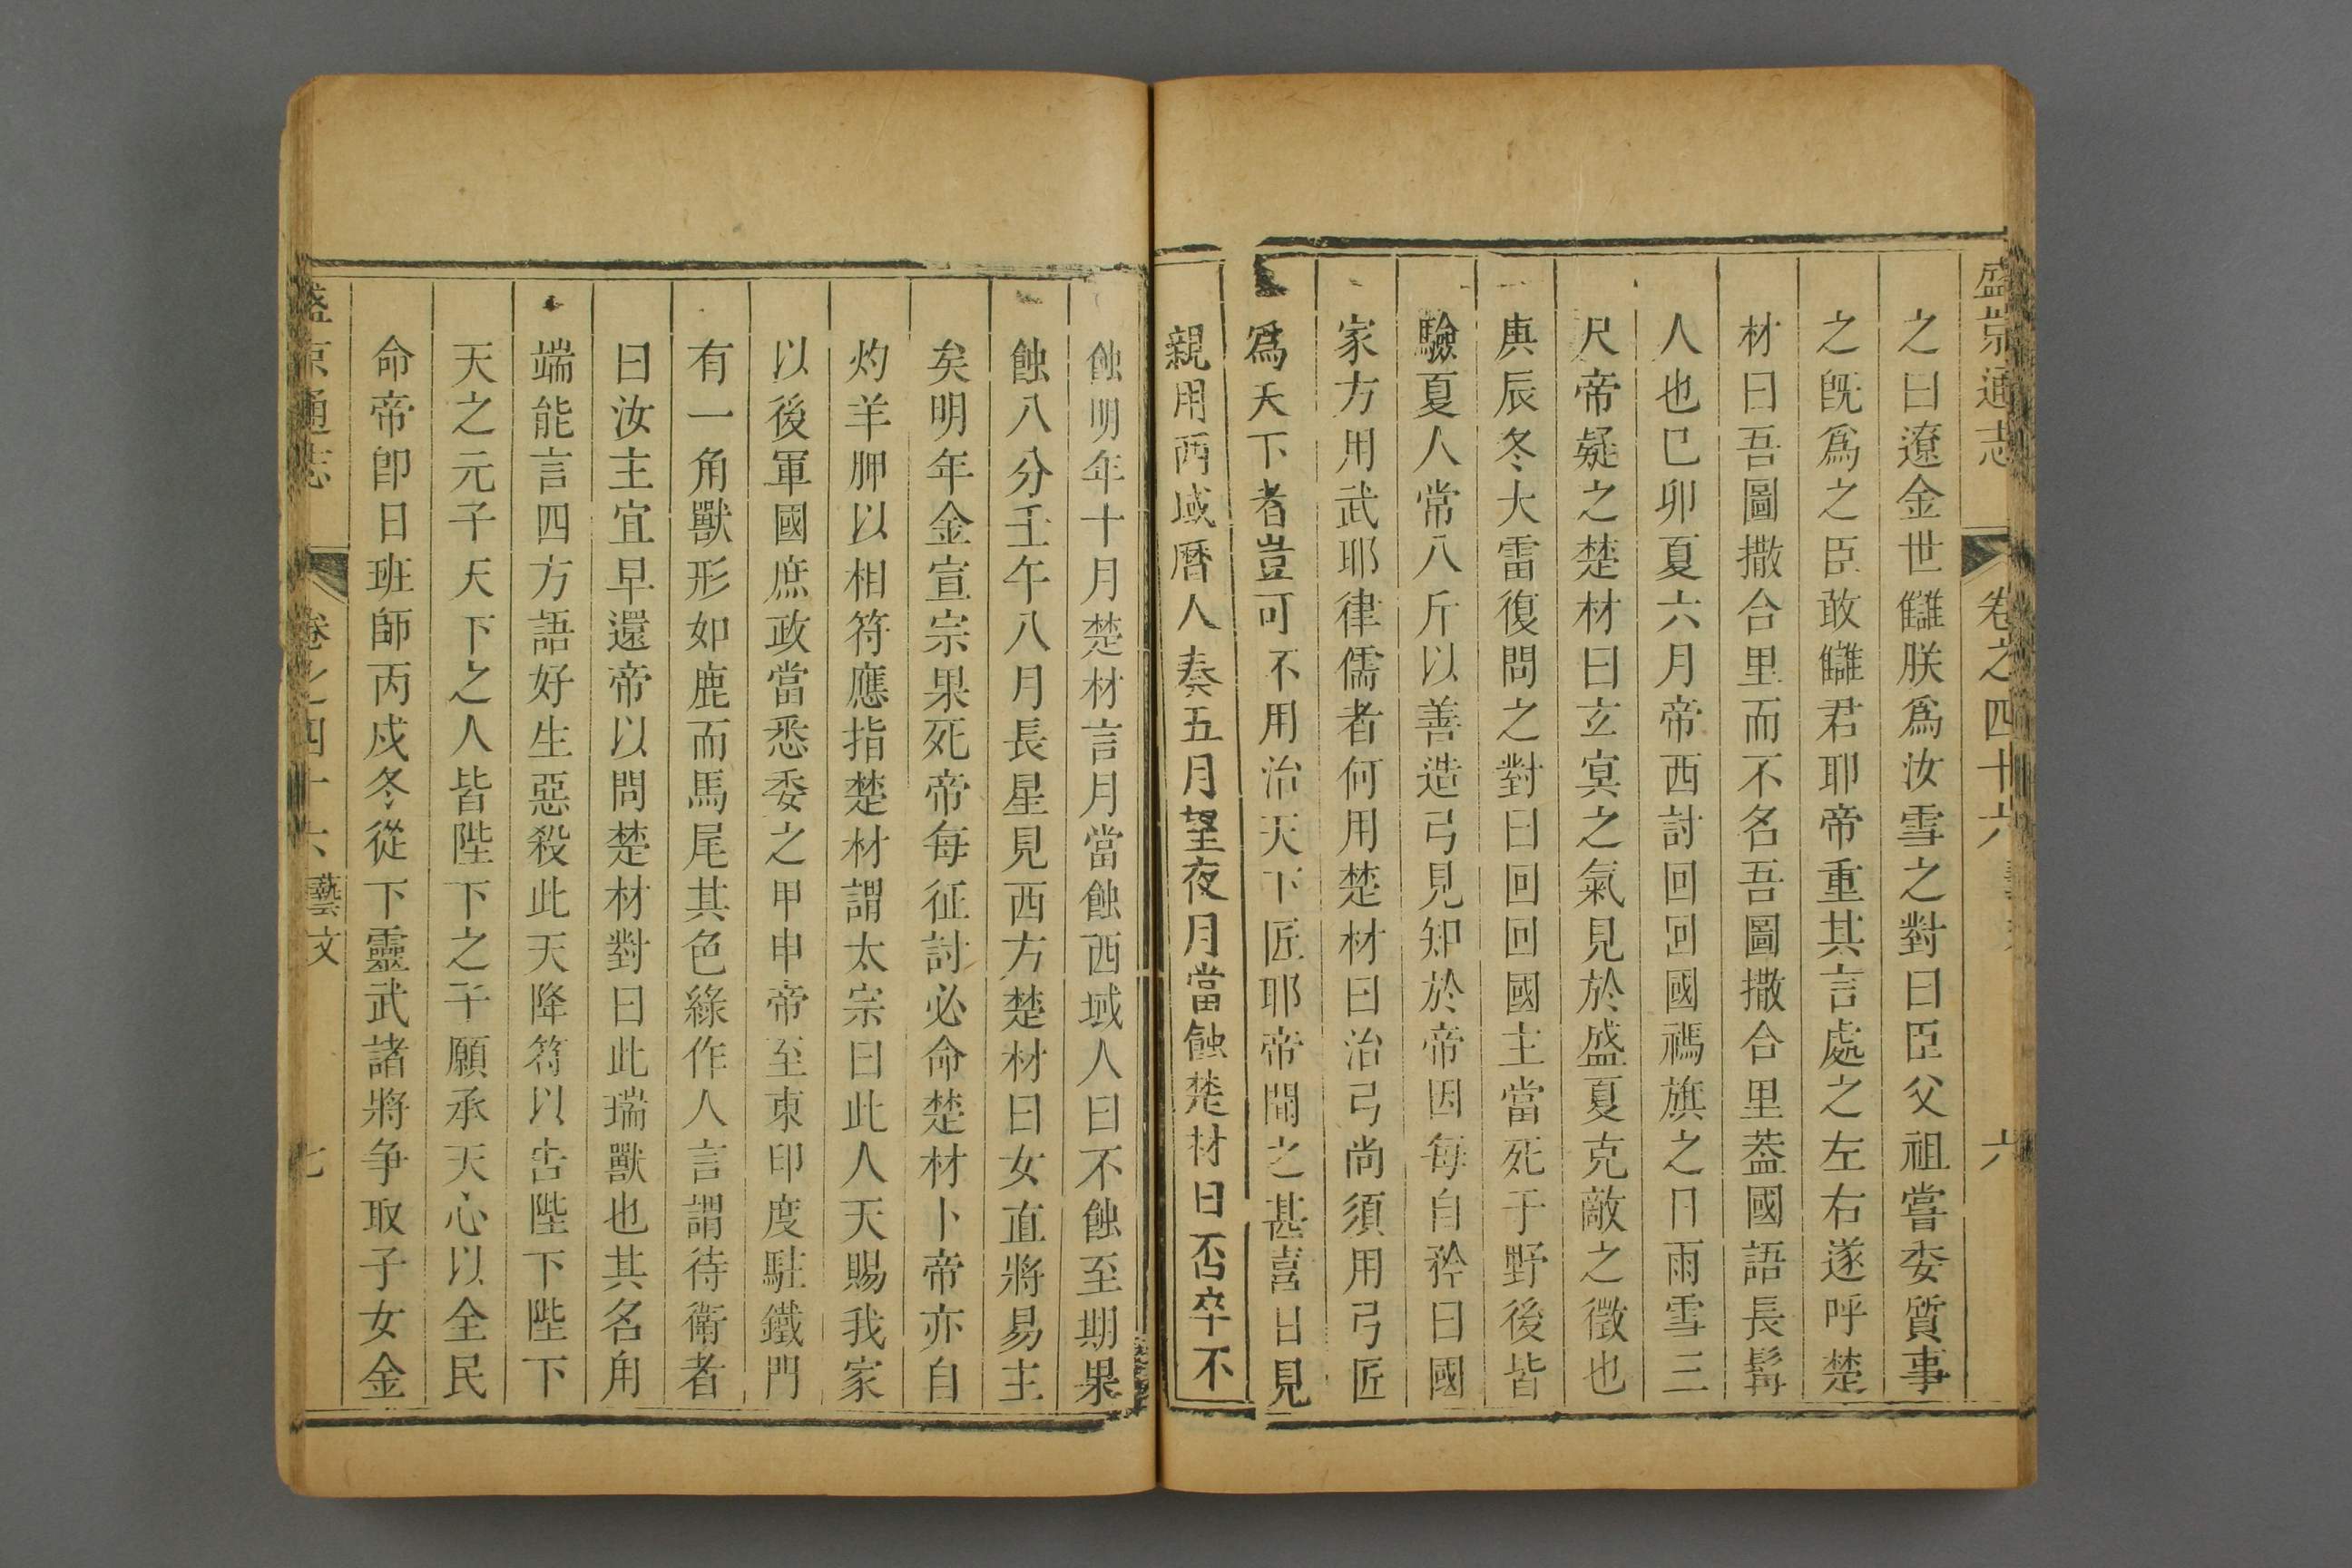 盛京通志 卷之四十六 六
之曰遼金世讎朕爲汝雪之對曰臣父祖嘗委質事
之旣爲之臣敢讎君耶帝重其言處之左右遂呼楚
材曰吾圖撒合里而不名吾圖撒合里葢國語長髯
人也巳卯夏六月帝西討回回國禡旗之日雨雪三
尺帝疑之楚材曰玄㝠之氣見於盛夏克敵之徵也
庚辰冬大雷復問之對曰回回國主當死于野後皆
驗夏人常八斤以善造弓見知於帝因每自矜曰國
家方用武耶律儒者何用楚材曰治弓尚須用弓匠
爲天下者豈可不用治天下匠耶帝聞之甚喜日見
親用西域曆人奏五月望夜月當蝕楚材曰否卒不
蝕明年十月楚材言月當蝕西域人曰不蝕至期果
蝕八分壬午八月長星見西方楚材曰女直將易主
矣明年金宣宗果死帝每征討必命楚材卜帝亦自
灼羊胛以相符應指楚材謂太宗曰此人天賜我家
以後軍國庶政當悉委之甲申帝至東印度駐鐵門
有一角獸形如鹿而馬尾其色綠作人言謂待衛者
曰汝主宜早還帝以問楚材對曰此瑞獸也其名角
端能言四方語好生惡殺此天降符以告陛下陛下
天之元子天下之人皆陛下之子願承天心以全民
命帝卽日班師丙戍冬從下靈武諸將争取子女金
盛京通志 卷之四十六 藝文 七